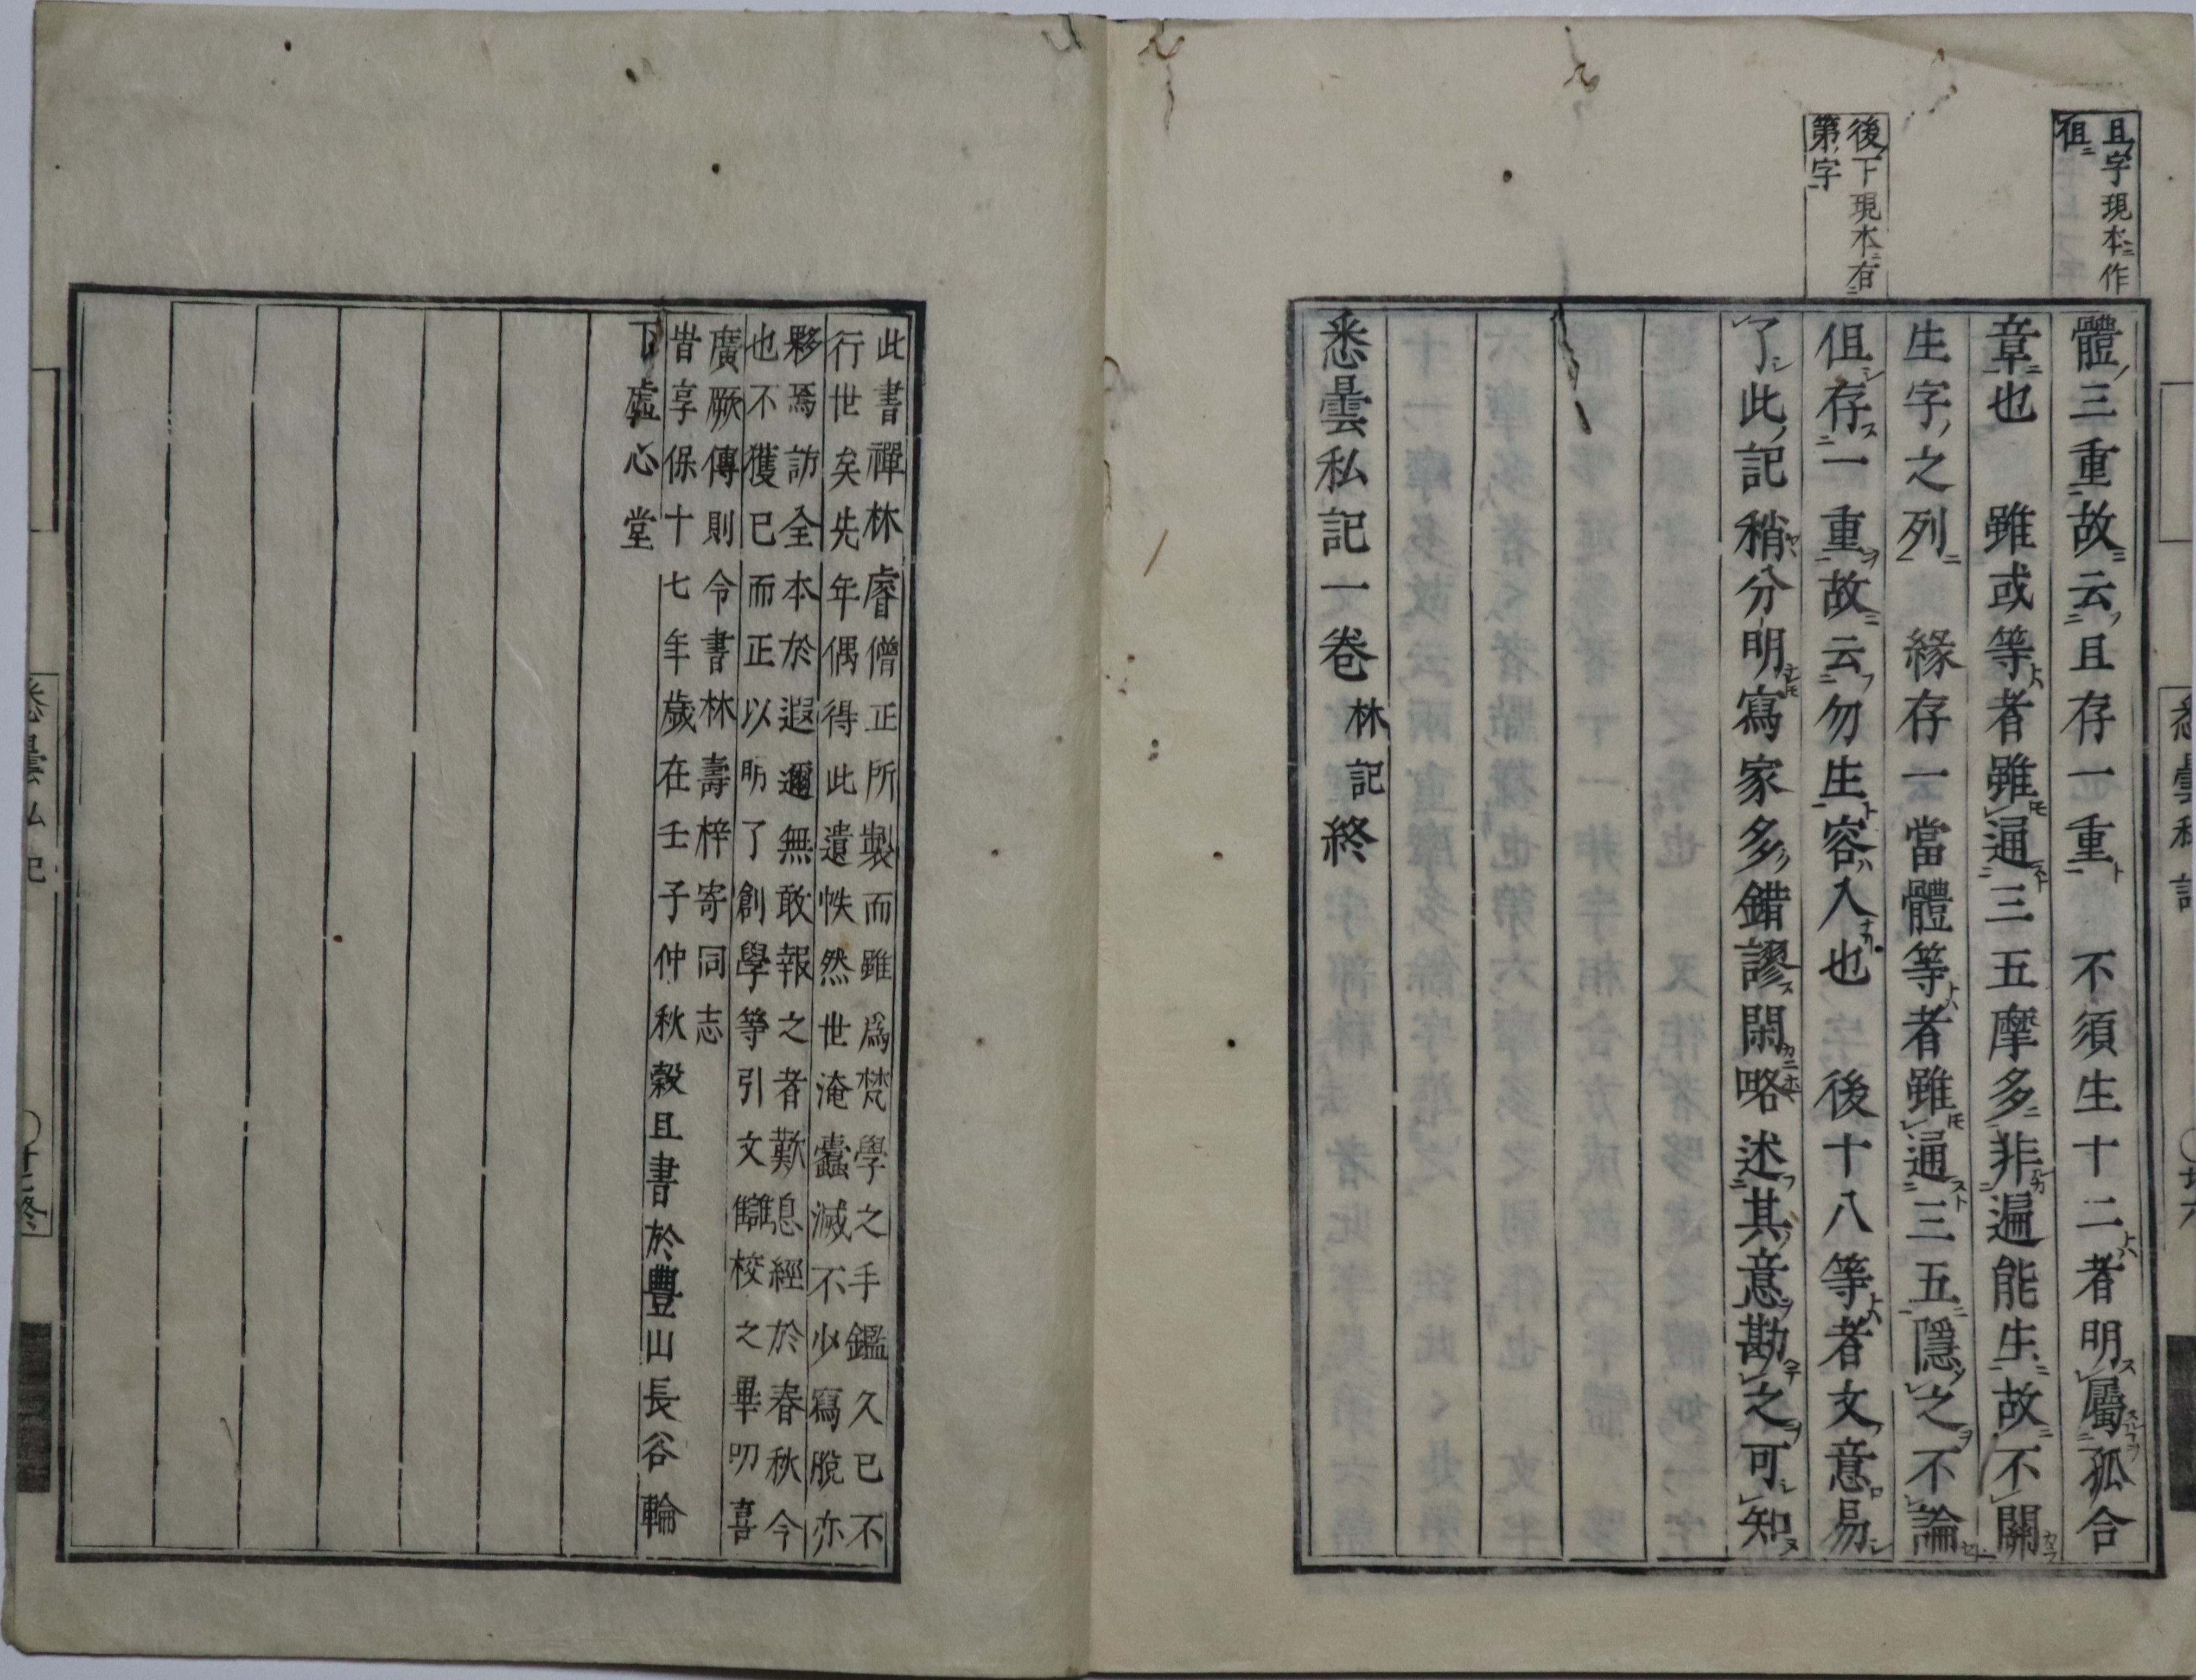 且字現本作
徂
後下現本有
第字
體三重故云且存一重 不須生十二者明屬孤合
章也 雖或等者雖通三五摩多非遍能生故不關
生字之列 緣存一當體等者雖通三五隱之不論
但存一重故云勿生容入也 後十八等者文意易
了此記稍分明寫家多錯謬閑略述其意勘之可知
悉曇私記一卷 林記 終
此書禪林睿僧正所製而雖爲梵學之手鑑久已不
行世矣先年偶得此遺帙然世淹蠹滅不少寫脫亦
夥焉訪全本於遐邇無敢報之者歎息經於春秋今
也不獲已而正以明了創學等引文讎校之畢叨喜
廣厥傳則令書林壽梓寄同志
旹享保十七年歲在壬子仲秋穀旦書於豐山長谷輪
下虛心堂
悉曇私記